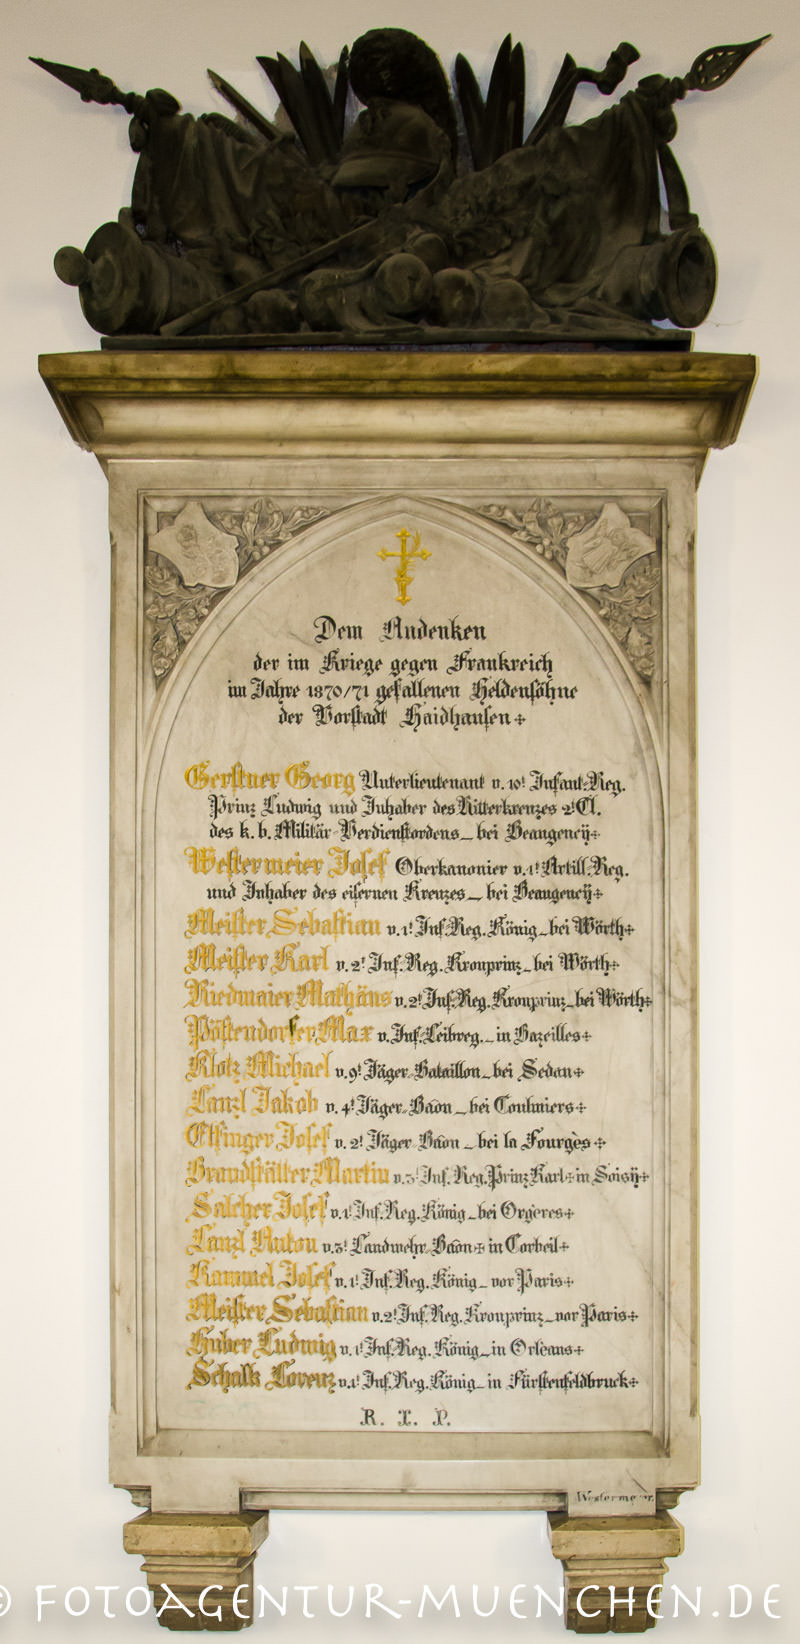 Dem Andenken
der im Kriege gegen Frankreich
im Jahre 1870/71 gefallenen Heldensöhne
der Vorstadt Haidhausen
Gerstner Georg Unterlieutenant v. 10t Infant.-Reg.
Prinz Ludwig und Inhaber des Ritterkreuzes 2t Cl.
des k. b. Militär-Verdienstordens_ bei Beaugency
Westermeier Josef Oberkanonier v. 1t Artill.-Reg.
und Inhaber des eisernen Kreuzes_ bei Beaugency
Meister Sebastian v. 1t Inf.-Reg. König_bei Wörth
Meister Karl v. 2t Inf.-Reg. Kronprinz_bei Wörth
Riedmaier Mathäus v. 2t Inf.-Reg. Kronprinz_bei Wörth
Pöstendorfer Max v. Inf.-Leibreg._in Bazeilles
Klotz Michael v. 9t Jäger-Bataillon_bei Sedan
Lanzl Jakob v. 4t Jäger-Baōn_bei Coulmiers
Etfinger Josef v. 2t Jäger-Baōn_bei la Fourgès
Brandstätter Martin v. 3t Inf. Reg. Prinz Karl in Soisy
Salcher Josef v. 1t Inf. Reg. König_bei Orgeres
Lanzl Anton v. 3t Landwehr-Baōn in Corbeil
Kammel Josef v. 1t Inf. Reg. König_vor Paris
Meister Sebastian v. 2t Inf. Reg. Kronprinz_vor Paris
Huber Ludwig v. 1t Inf. Reg. König_in Orleans
Schalk Lorenz v. 1t Inf. Reg. König_in Fürstenfeldbruck
R. I. P.
Westermeyer.
© FOTOAGENTUR-MUENCHEN.DE